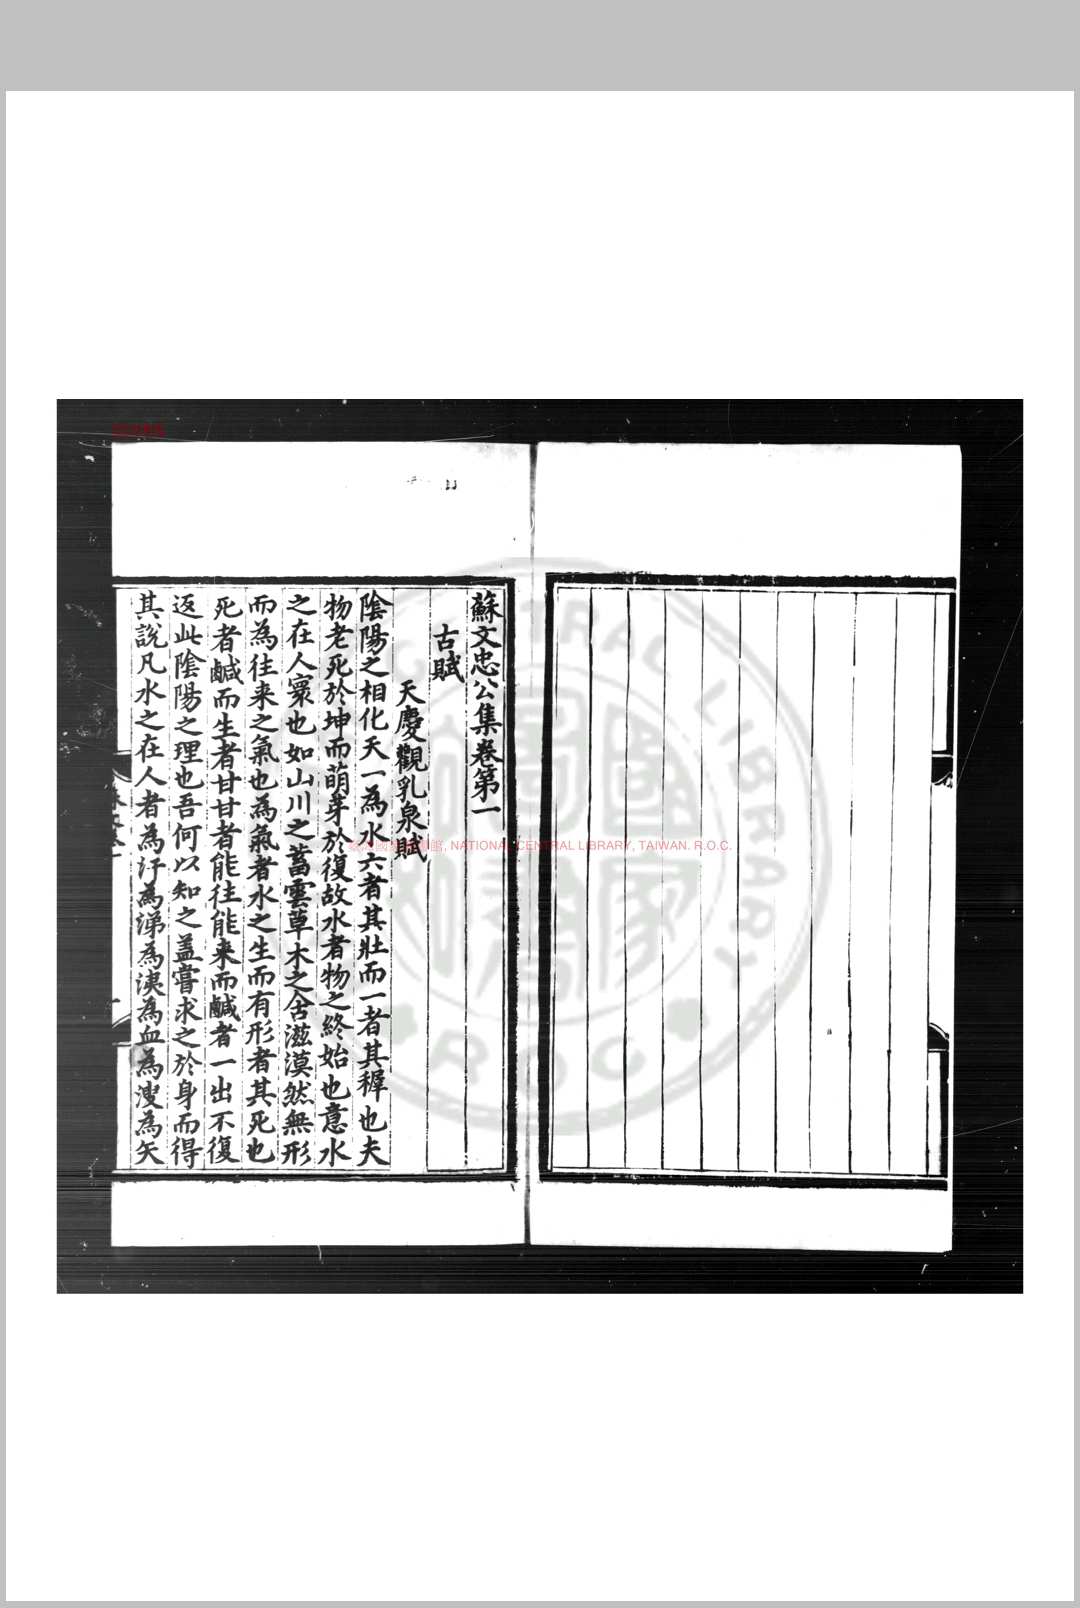 蘇文忠公集卷第一
古賦
天慶觀乳泉賦
陰陽之相化天一為水六者其壯而一者其稺也夫
物老死於坤而萌芽於復故水者物之終始也意水
之在人寰也如山川之蓄雲草木之含滋漠然無形
而為往来之氣也為氣者水之生而有形者其死也
死者鹹而生者甘甘者能往能来而鹹者一出不復
返此陰陽之理也吾何以知之蓋嘗求之於身而得
其說凡水之在人者為汗為涕為洟為血為溲為矢
NATIONAL CENTRAL LIBRARY, TAIWAN. R.O.C.